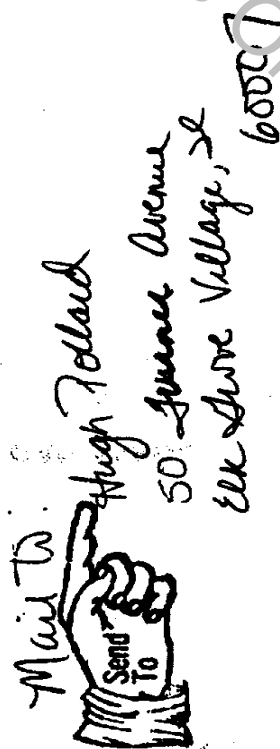 Mail To
Send To
Hugh Pollard
50 Turner Avenue
Elk Grove Village, Il
60007